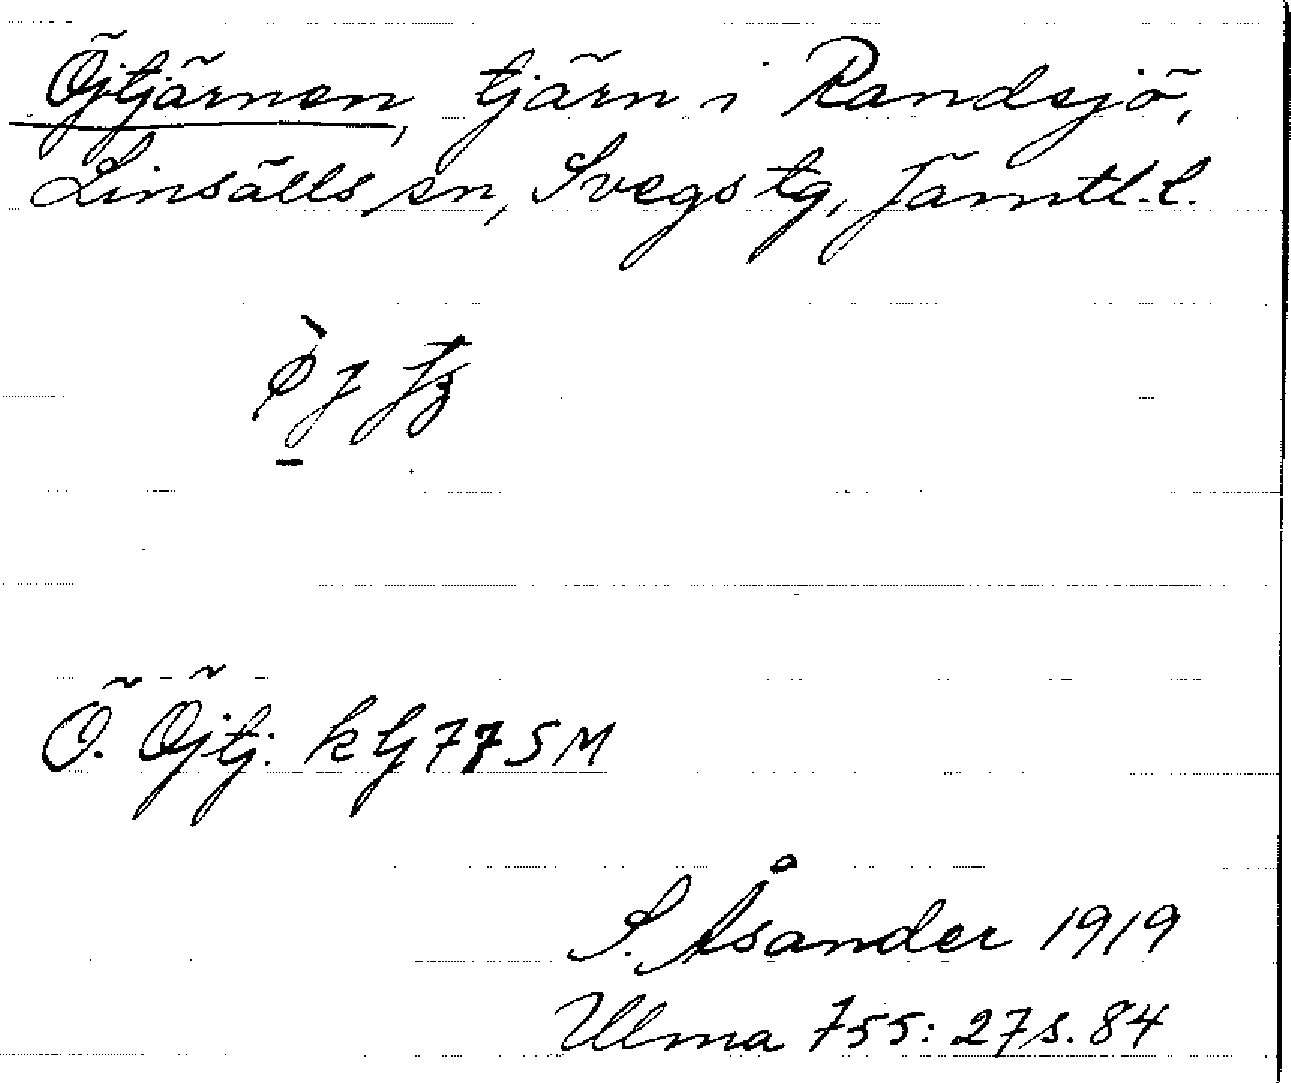 Öjtjärnen, tjärn i Randsjö,
Linsälls sn, Svegs tg, Jämtl. l.
Ö. Öjtj: k G 77 SM
S. Åsander 1919
Ulma 755: 27 s. 84